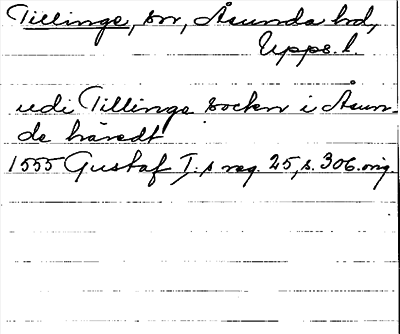 Tillinge, sn, Åsunda hd,
Upps. l.
udi Tillinge sockn i Åsun-
da häredt
1555 Gustaf I:s reg. 25, s. 306. orig.